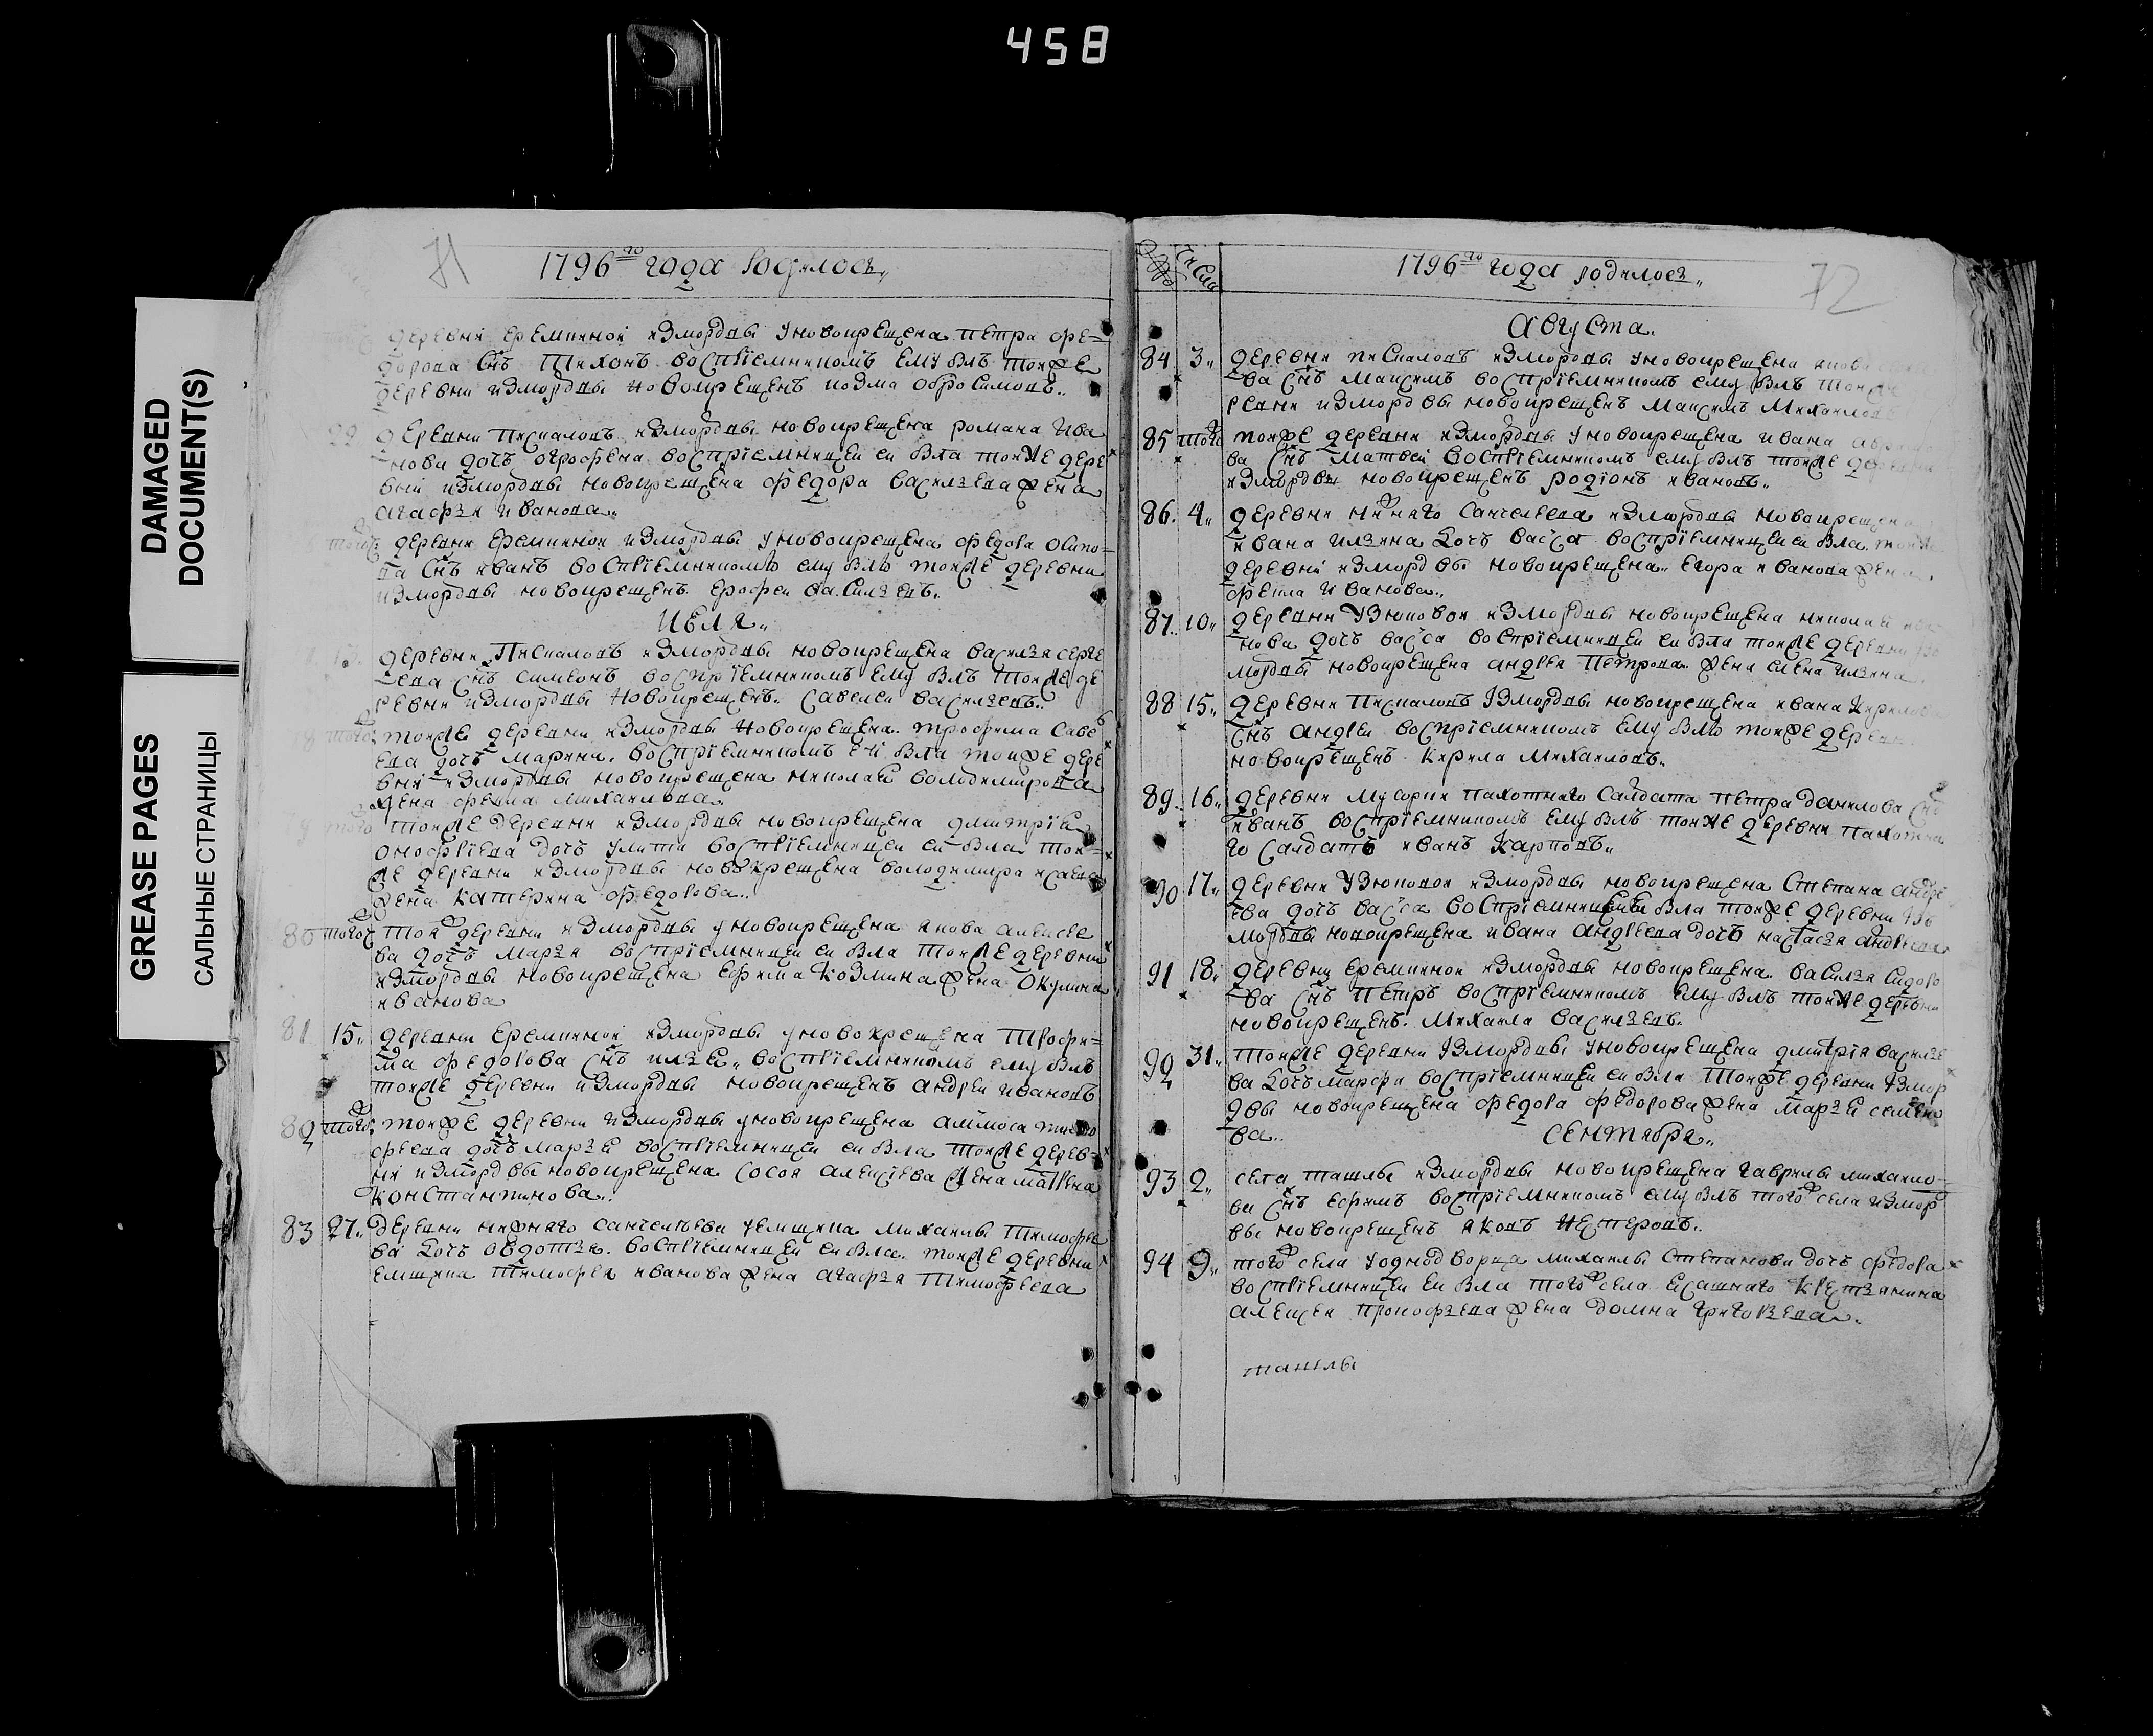 458
DAMAGED
DOCUMENT(S)
GREASE PAGES
САЛЬНЫЕ СТРАНИЦЫ
71
1796го года родилось
деревни Еремкиной измордвы уновокрещена петра фе=
дорова снъ Тихонъ воспріемникомъ ему былъ тоиже
деревни измордвы новокрещенъ козма обросимовъ
29 деревни Пискаловъ измордвы новокрещена романа ива
нова дочь огрофена воспріемницеи еи была тоиже дере
вни измордвы новокрещена федора васильева жена
агафья иванова
тогож деревни Еремкинои измордвы уновокрещена федора осипо=
ва снъ иванъ воспріемникомъ ему былъ тоиже деревни
измордвы новокрещенъ ерофеи васильевъ
Июля
деревни Пискаловъ измордвы новокрещена василья серге
ева снъ симеонъ воспріемникомъ ему былъ тоиже де
ревни измордвы новокрещенъ савелеи васильевъ
78 тогож тоиже деревни измордвы новокрещена трофима саве
ева дочь марина воспріемникомъ еи была тоиже дере
вни измордвы новокрещена николаи володимирова
жена фекла михаилова
79 тогож тоиже деревни измордвы новокрещена дмитрія
онофріева дочь улита воспріемницеи еи была тои=
же деревни измордвы новокрещена володимира исаева
жена катерина федорова
80 тогож тоиж деревни измордвы уновокрещена якова алексее
ва дочь марья воспріемницеи еи была тоиже деревни
измордвы новокрещена ефима козмина жена окулина
иванова
81 15 деревни Еремкинои измордвы уновокрещена Трофи=
ма федорова снъ илья воспріемникомъ ему былъ
тоиже деревни измордвы новокрещенъ андреи ивановъ
82 тогож тоиже деревни измордвы уновокрещена алимоса тимо
феева дочь марья воспріемницеи еи была тоиже дерев=
ни измордвы новокрещена сосоя алексіева жена матрена
константинова
83 27 деревни нижняго санчелеева уемщика михаилы тимофее
ва дочь овдотья воспріемницеи еи была тоиже деревни
емщика тимофея иванова жена агафья тимофеева
72
1796го года родилось
Августа
84 3 деревни пискаловъ измордвы уновокрещена
ва снъ максимъ воспріемникомъ ему былъ тоиже
ревни измордвы новокрещенъ максимъ михаиловъ
85 тогож тоиже деревни измордвы уновокрещена ивана
ва снъ матвеи воспріемникомъ ему былъ тоиже деревни
измордвы новокрещенъ родіонъ ивановъ
86 4 деревни нижняго санчелеева измордвы новокрещена
ивана ильина дочь васса воспріемницеи еи была тоиже
деревни измордвы новокрещена егора иванова жена
фекла иванова
87 10 деревни Узюковои измордвы новокрещена николаи
нова дочь васса воспріемницеи еи была тоиже деревни из
мордвы новокрещена андрея петрова жена елена ильина
88 15 деревни Пискаловъ измордвы новокрещена ивана кирилов
снъ андреи воспріемникомъ ему былъ тоиже деревни
новокрещенъ кирила михаиловъ
89 16 деревни мусорки пахотнаго салдата петра данилова снъ
иванъ воспріемникомъ ему былъ тоиже деревни пахотна
го салдатъ иванъ карповъ
90 17 деревни Узюковои измордвы новокрещена степана андре
ева дочь васса воспріемницеи еи была тоиже деревни из
мордвы новокрещена ивана андреева дочь настасья андреева
91 18 деревни Еремкинои измордвы новокрещена василья сидоро
ва снъ петръ воспріемникомъ ему былъ тоиже деревни
новокрещенъ михаила васильевъ
92 31 тоиже деревни измордвы уновокрещена дмитрія василье
ва дочь марфа воспріемницеи еи была тоиже деревни измор
двы новокрещена федора федорова жена марья семено
ва
Сентября
93 2 села ташлы измордвы новокрещена гаврилы михаило=
ва снъ ефимъ воспріемникомъ ему былъ тогож села измор
вы новокрещенъ яковъ нестеровъ
94 9 тогож села уоднодворца михаилы степанова дочь федора
воспріемницеи еи была тогож села ясашнаго крестьянина
алексея прокофьева жена домна григорьева
ташлы